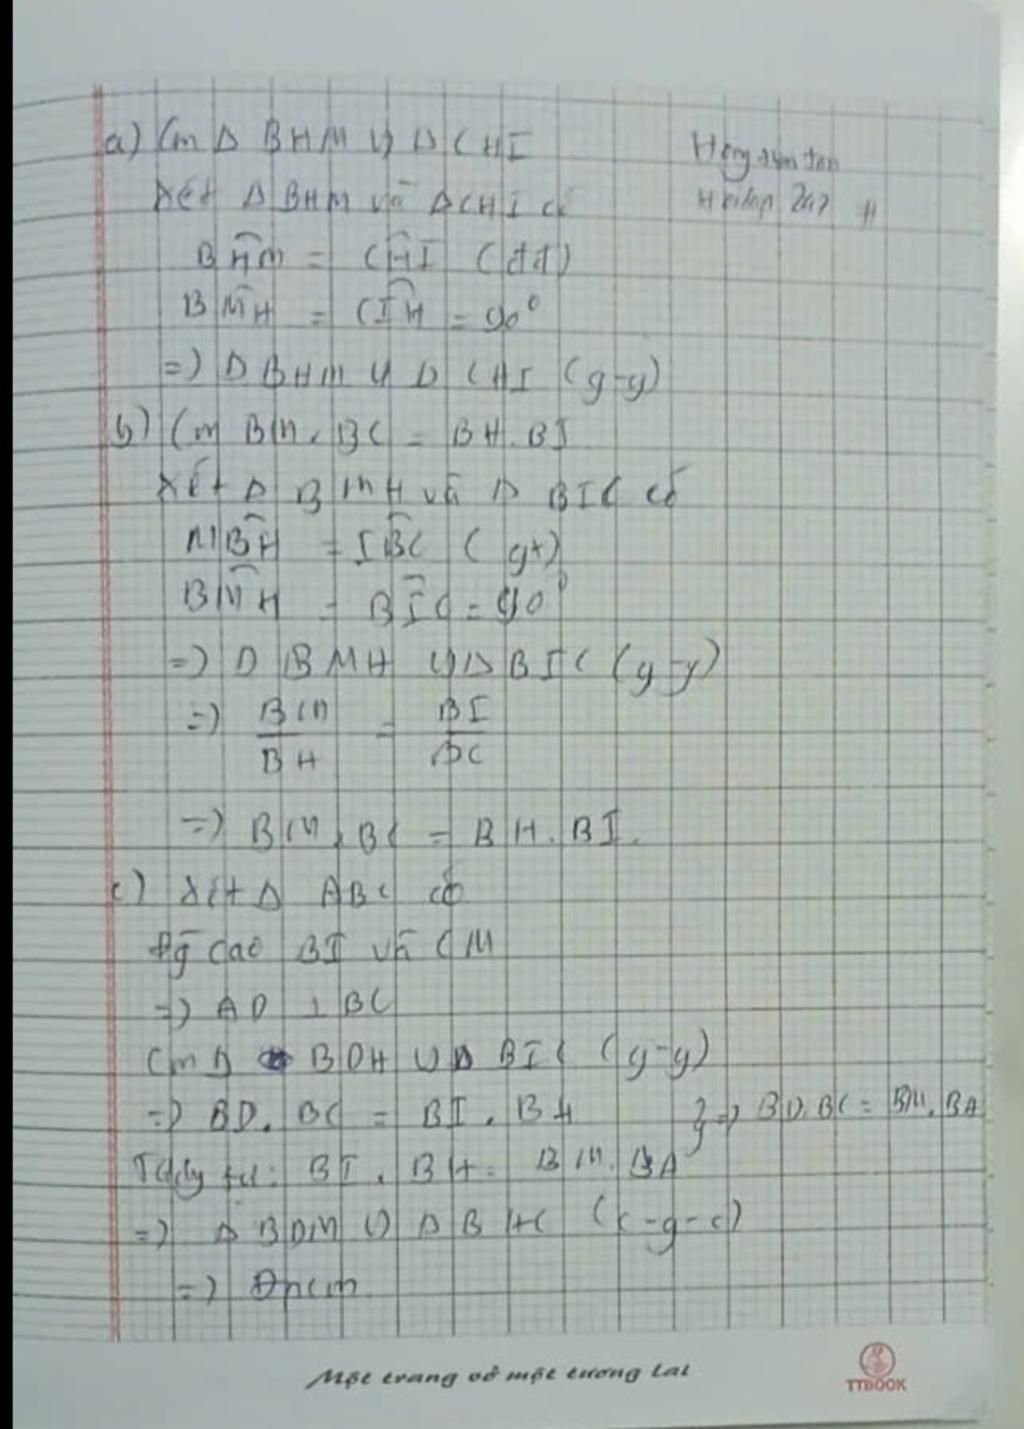 a) Cm Δ BHM ∽ Δ CHI
Xét Δ BHM và ΔCHI có
BHM = CHI (đđ)
BMH = CIH = 90°
=> Δ BHM ∽ Δ CHI (g-g)
b) Cm BM . BC = BH . BI
Xét Δ BMH và Δ BIC có
MBH = IBC (gt)
BMH = BIC = 90°
=> Δ BMH ∽ Δ BIC (g-g)
=> BM/BH = BI/BC
=> BM . BC = BH . BI.
c) Xét Δ ABC có
đg cao BI và CM
=> AD ⊥ BC
Cm Δ BDH ∽ Δ BIC (g-g)
=> BD . BC = BI . BH } => BD. BC = BM. BA
tự: BI . BH = BM. BA
=> Δ BDM ∽ Δ BHC (c-g-c)
=> Đpcm
Một trang vở một tương lai
TTBOOK